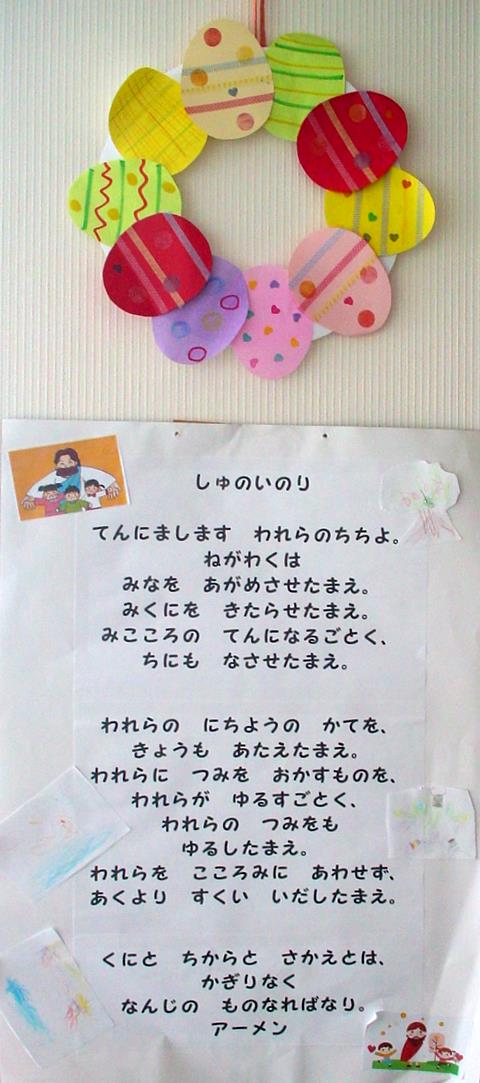 しゅのいのり
てんにまします　われらのちちよ。
ねがわくは
みなを　あがめさせたまえ。
みくにを　きたらせたまえ。
みこころの　てんになるごとく、
ちにも　なさせたまえ。
われらの　にちようの　かてを、
きょうも　あたえたまえ。
われらに　つみを　おかすものを、
われらが　ゆるすごとく、
われらの　つみをも
ゆるしたまえ。
われらを　こころみに　あわせず、
あくより　すくい　いだしたまえ。
くにと　ちからと　さかえとは、
かぎりなく
なんじの　ものなればなり。
アーメン